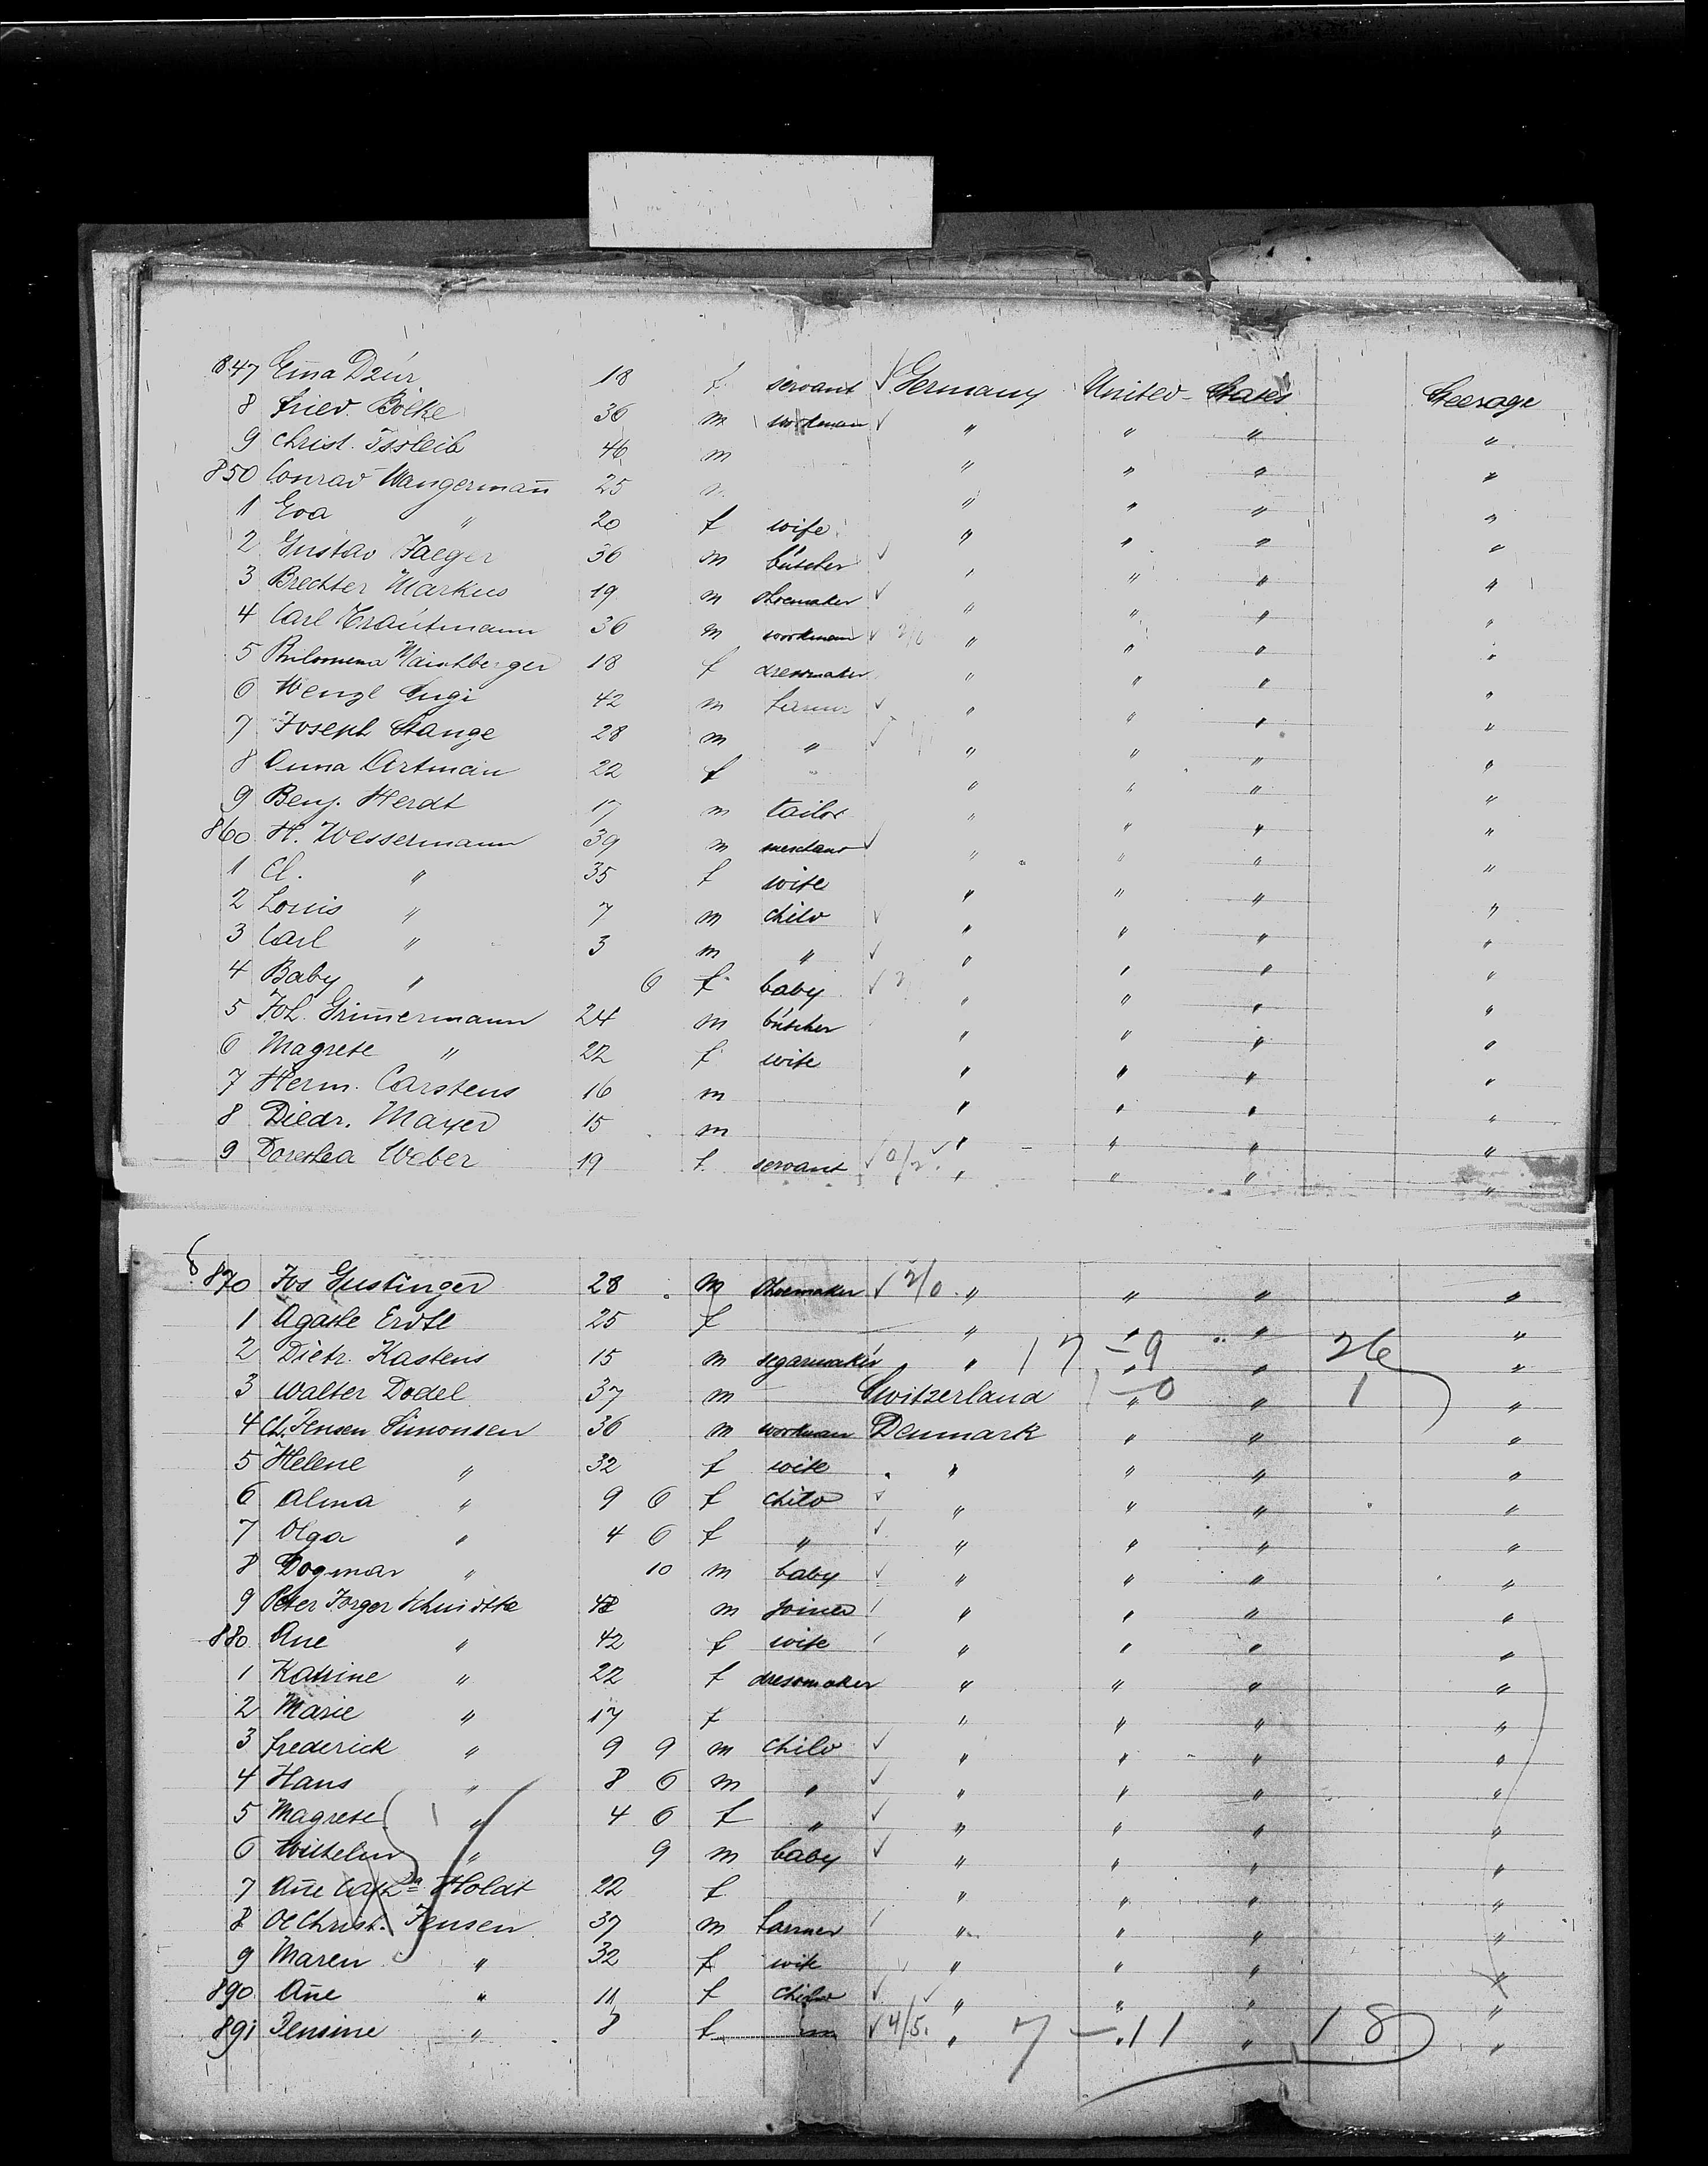 847 Em̄a Dzúr 18 f servant Germany United States Steerage
8 Fried. Bölke 36 m workman " " " "
9 Christ. Issleib 46 m " " " "
850 Conrad Wangerman̄ 25 m " " " "
1 Eva " 20 f wife " " " "
2 Gustav Jaeger 36 m bútcher " " " "
3 Brechter Markus 19 m shoemaker " " " "
4 Carl Traútmann 36 m workman " " " "
5 Philomena 18 f dressmaker " " " "
6 Wenzl 42 m farmer " " " "
7 Joseph Stange 28 m " " " " "
8 Anna Artman 22 f " " " " "
9 Benj. Herdt 17 m tailor " " " "
860 H. Wessermann 39 m merchant " " " "
1 Cl. " 35 f wife " " " "
2 Louis " 7 m child " " " "
3 Carl " 3 m " " " " "
4 Baby " 6 f baby " " " "
5 Joh. Grim̄ermann 24 m bútcher " " " "
6 Magrete " 22 f wife " " " "
7 Herm. Carstens 16 m " " " "
8 Diedr. Mayer 15 m " " " "
9 Dorothea Weber 19 f servant " " " "
870 Jos Gustinger 28 m shoemaker 2/0 " " " "
1 Agathe Erdtl 25 f " " " "
2 Dietr. Kastens 15 m segarmaker " 17 - 9 " " 26 "
3 Walter Dodel 37 m Switzerland 1 - 0 " " 1 "
4 Ch. Jensen Simonsen 36 m workman Denmark " " "
5 Helene " 32 f wife " " " "
6 Alma " 9 6 f child " " " "
7 Olga " 4 6 f " " " " "
8 Dogmar " 10 m baby " " " "
9 Peter Jorger Schmidtke 48 m joiner " " " "
880 Ane " 42 f wife " " " "
1 Katrine " 22 f dressmaker " " " "
2 Marie " 17 f " " " "
3 Frederick " 9 9 m child " " " "
4 Hans " 8 6 m " " " " "
5 Magrete " 4 6 f " " " " "
6 Wilhelm " 9 m baby " " " "
7 An̄e Holdt 22 f " " " "
8 Christ. Jensen 37 m farmer " " " "
9 Maren " 32 f wife " " " "
890 An̄e " 11 f child " " " "
891 Jensine " 8 f 4/5. " 7 - 11 " " 18 "